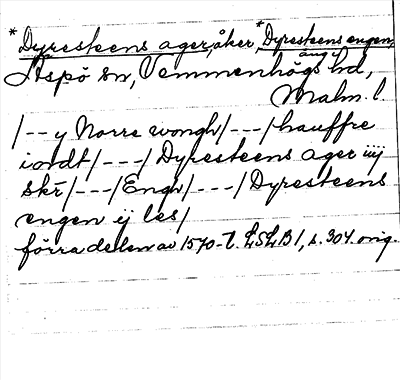 *Dyresteens ager, åker, *Dyresteens engen,
äng i
Äspö sn, Vemmenhögs hd,
Malm. l.
/--y Norre wongh/---/hauffre
iordt/---/Dyresteens ager iiij
skr̄/---/Engh/---/Dyresteens
engen ij les/
förra delen av 1570-t. LSLB1, s. 304. orig.